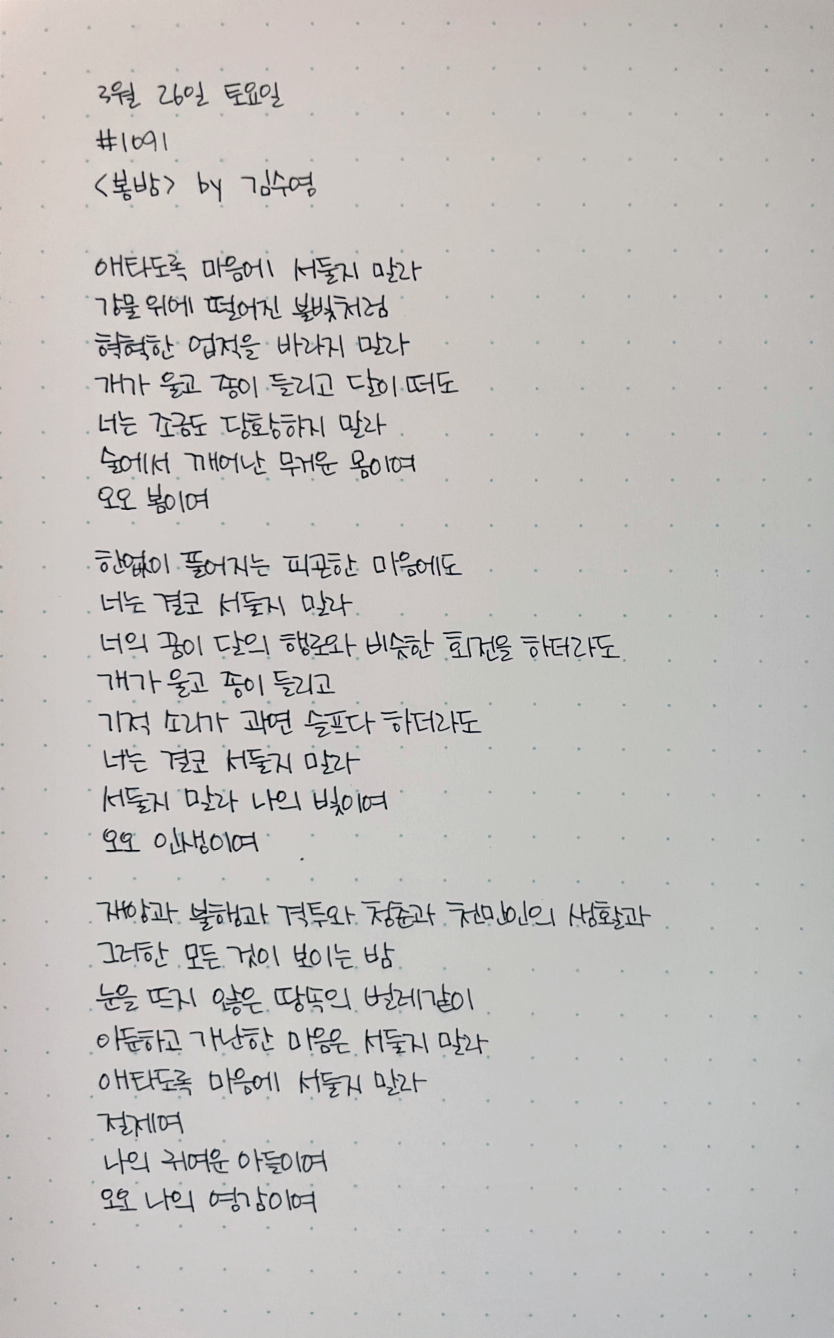 3월 26일 토요일
#1091
<봄밤> by 김수영
애타도록 마음에 서둘지 말라
강물 위에 떨어진 불빛처럼
혁혁한 업적을 바라지 말라
개가 울고 종이 들리고 달이 떠도
너는 조금도 당황하지 말라
술에서 깨어난 무거운 몸이여
오오 봄이여
한없이 풀어지는 피곤한 마음에도
너는 결코 서둘지 말라
너의 꿈이 달의 행로와 비슷한 회전을 하더라도
개가 울고 종이 들리고
기적 소리가 과연 슬프다 하더라도
너는 결코 서둘지 말라
서둘지 말라 나의 빛이여
오오 인생이여
재앙과 불행과 격투와 청춘과 천만인의 생활과
그러한 모든 것이 보이는 밤
눈을 뜨지 않은 땅속의 벌레같이
아둔하고 가난한 마음은 서둘지 말라
애타도록 마음에 서둘지 말라
절제여
나의 귀여운 아들이여
오오 나의 영감이여